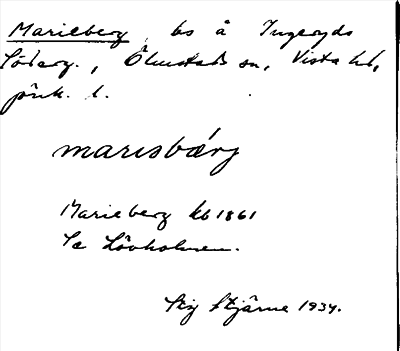 Marieberg, bs å Ingeryds
Söderg., Ölmstads sn, Vista hd,
Jönk. l.
marısbærj
Marieberg kb 1861
Se Lövholmen.
Stig Stjärne 1934.